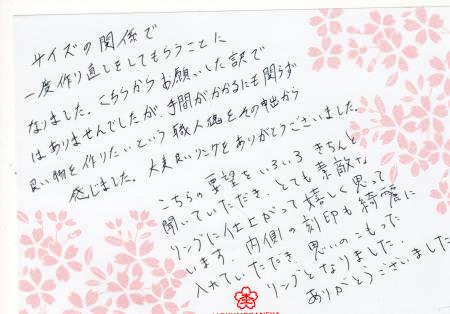 サイズの関係で
一度作り直しをしてもらうことに
なりました。こちらからお願いした訳で
はありませんでしたが、手間がかかるにも関らず
良い物を作りたいという職人魂をその中から
感じました。大変良いリングをありがとうございました。
こちらの要望をいろいろ きちんと
聞いていただき、とても素敵な
リングに仕上がって嬉しく思って
います。内側の刻印も綺麗に
入れていただき、思いのこもった
リングとなりました。
ありがとうございました